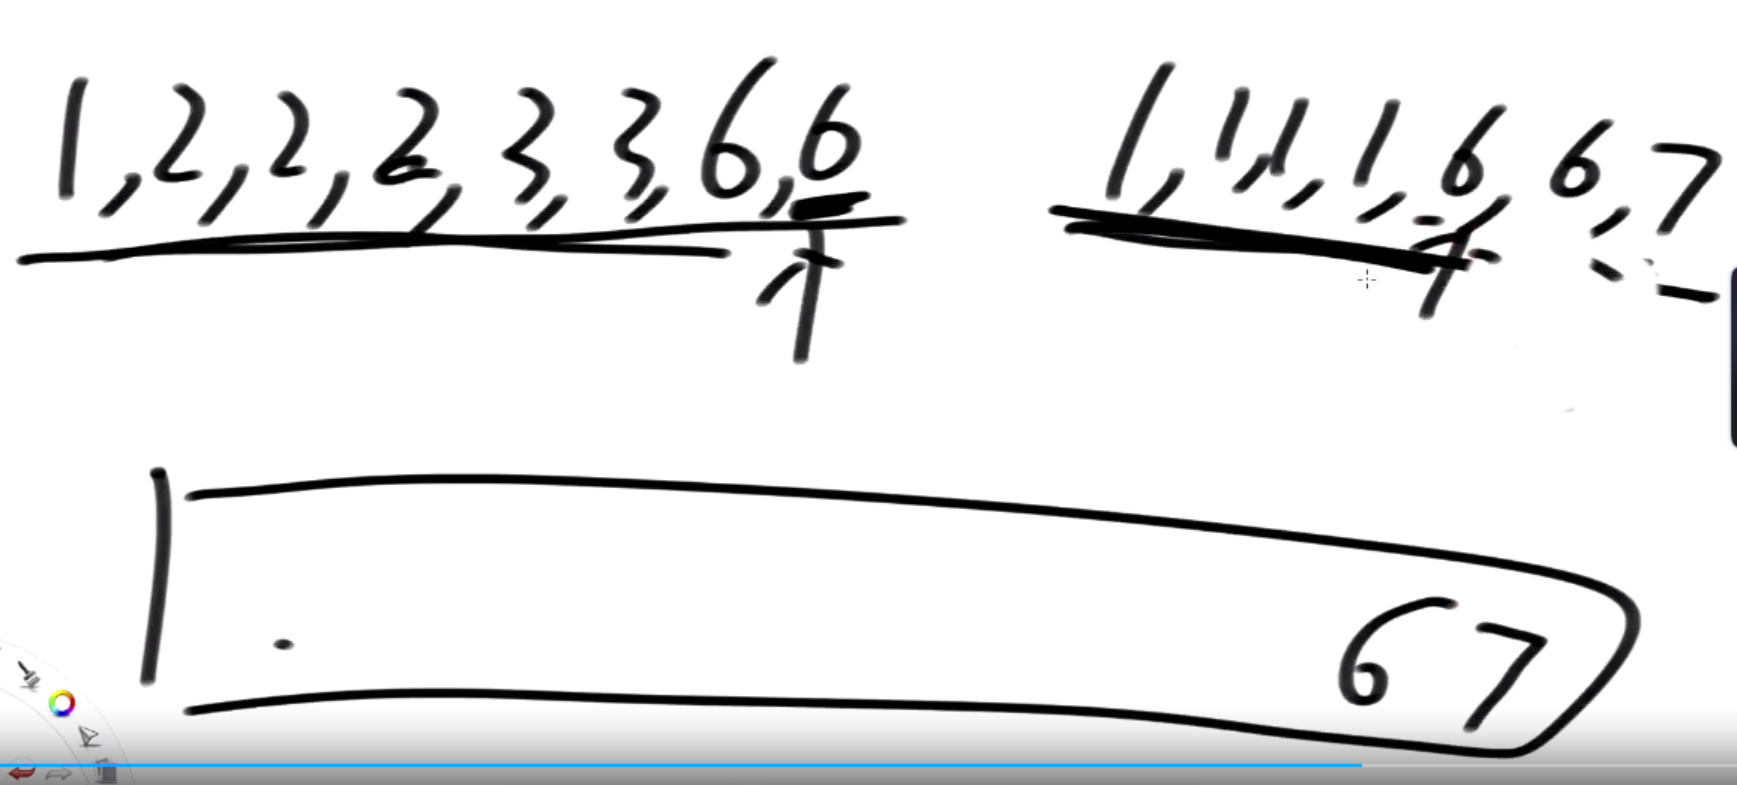 1,2,2,2,3,3,6,6 1,1,1,1,6,6,7
6 7